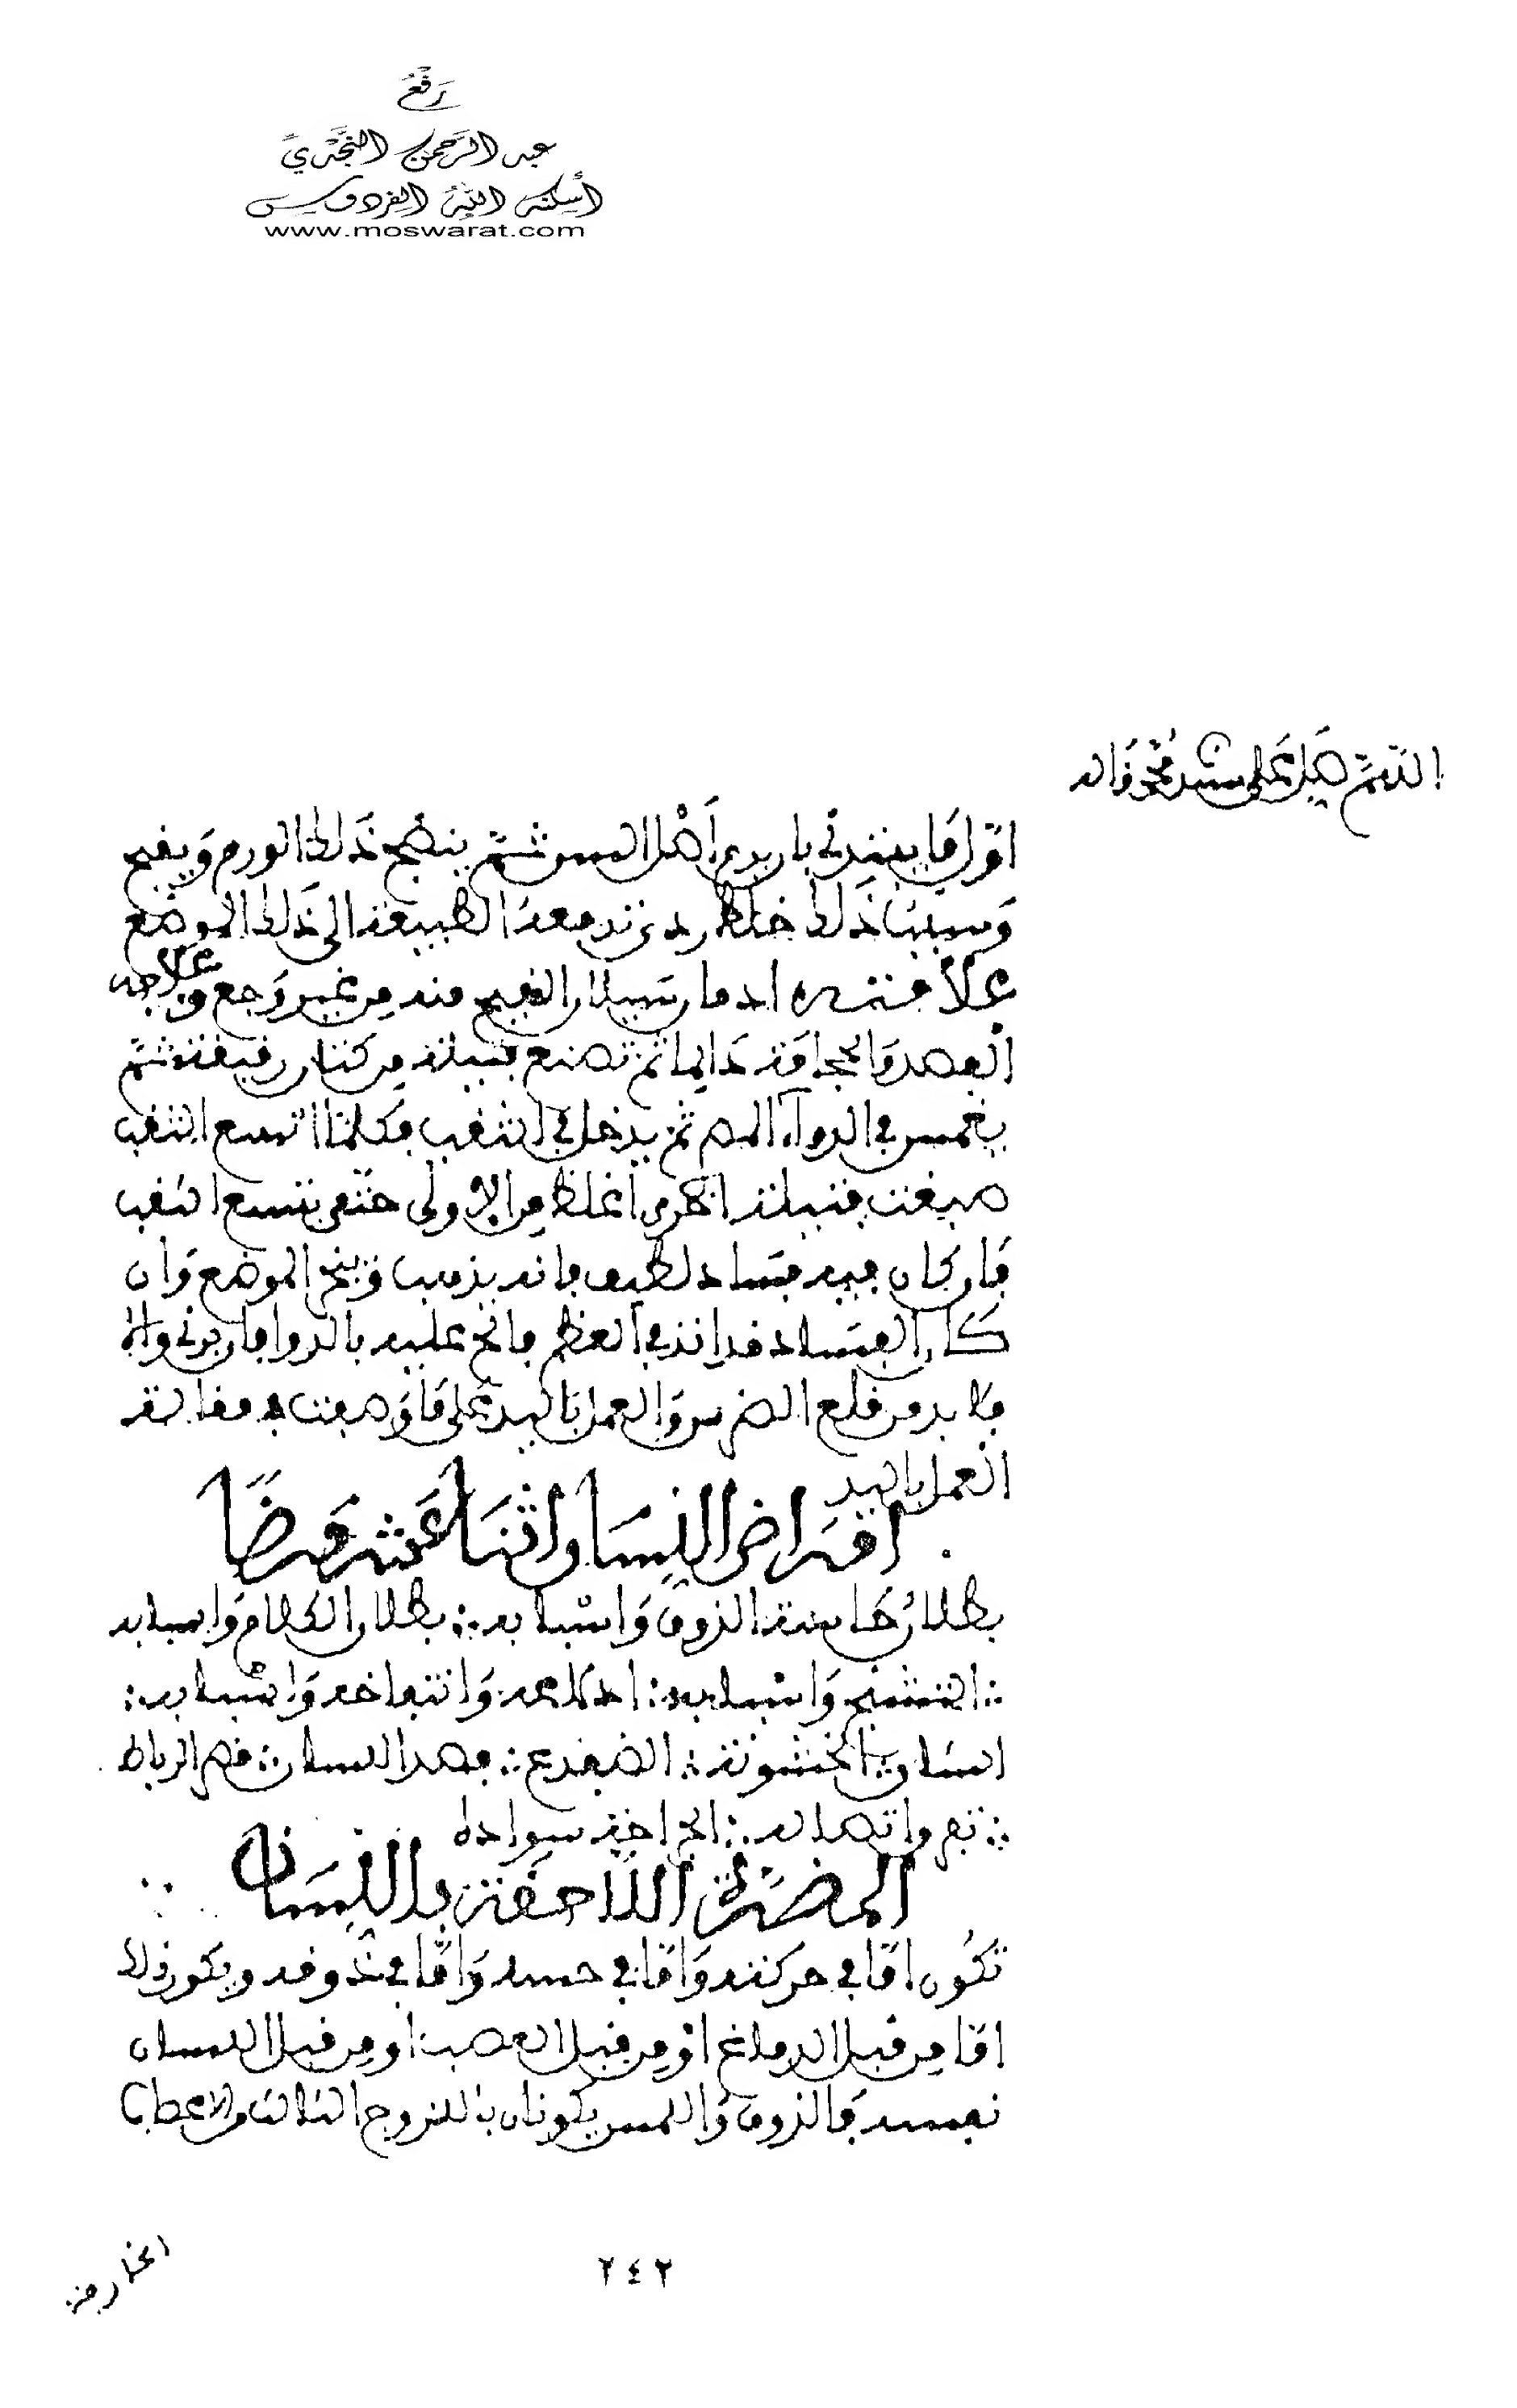 رَفْعُ
عبد الرحمن النجدي
أسكنه الله الفردوس
www.moswarat.com
اللهم صل على سيدنا محمد واله
اول ما يبتدئ بارب في اصل السن ثم ينضج ذلك الورم ويفيح
وسبب ذلك خلط ردئ تدفعه الطبيعة الى ذلك الموضع
علامته ادمان سيلان القيح منه من غير وجع وعلاجه
الفصد والحجامة دايما ثم تصنع فتيلة من كتان رقيقة ثم
يغمس في الدواء ثم يدخل في الثقب فكلما اتسع الثقب
صنعت فتيلة اخرى اغلظ من الاولى حتى يتسع الثقب
فان كان فيه فساد لطيف فانه يذهب وينجبر الموضع وان
كان الفساد قد اخذ في العظم فالح عليه بالدوا فان برئ والا
فلا بد من قلع الضرس والعمل باليد على ما وصفت في مقالة
العمل باليد
امراض اللسان اثنا عشر مرضا
بطلان حاسة الذوق واسبابه ∴ بطلان الكلام واسبابه
∴ التشنج واسبابه ∴ اندلاعه وانتفاخه واسبابه ∴
اللسان الخشونة ∴ الضفدع ∴ فصد اللسان ∴ قصر الرباط
∴ واتصاله ∴ سواده
المضرة اللاحقة باللسان
تكون اما في حركته واما في حسه واما في ذوقه ويكون ذلك
اما من قبل الدماغ او من قبل العصب او من قبل اللسان
نفسه فالذوق واللمس يكونان بالزوج الثالث من الاعصاب
الخارجة
٢٤٢